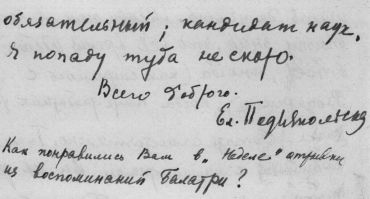 обязательный, кандидат наук.
Я попаду туда не скоро.
Всего доброго.
Ел. Подъяпольская
Как понравились Вам в „Неделе" отрывки
из воспоминаний Балатри?